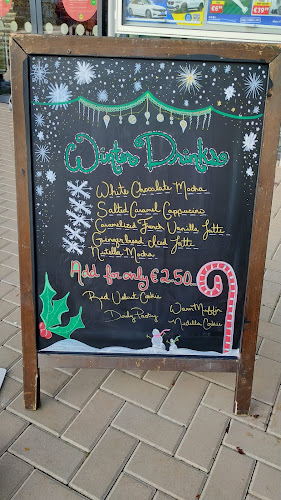 Winter Drinks
White Chocolate Mocha
Salted Caramel Cappuccino
Caramelized French Vanilla Latte
Gingerbread Iced Latte
Nutella Mocha
Add for only €2.50
Red Velvet Cookie
Warm Muffin
Daily Pastry
Nutella Cookie